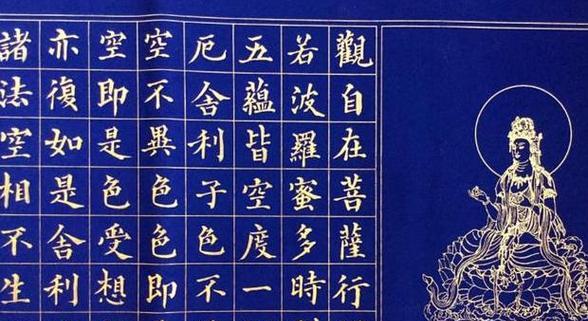 觀自在菩薩行
若波羅蜜多時
五蘊皆空度一
厄舍利子色不
空不異色色即
空即是色受想
亦復如是舍利
諸法空相不生